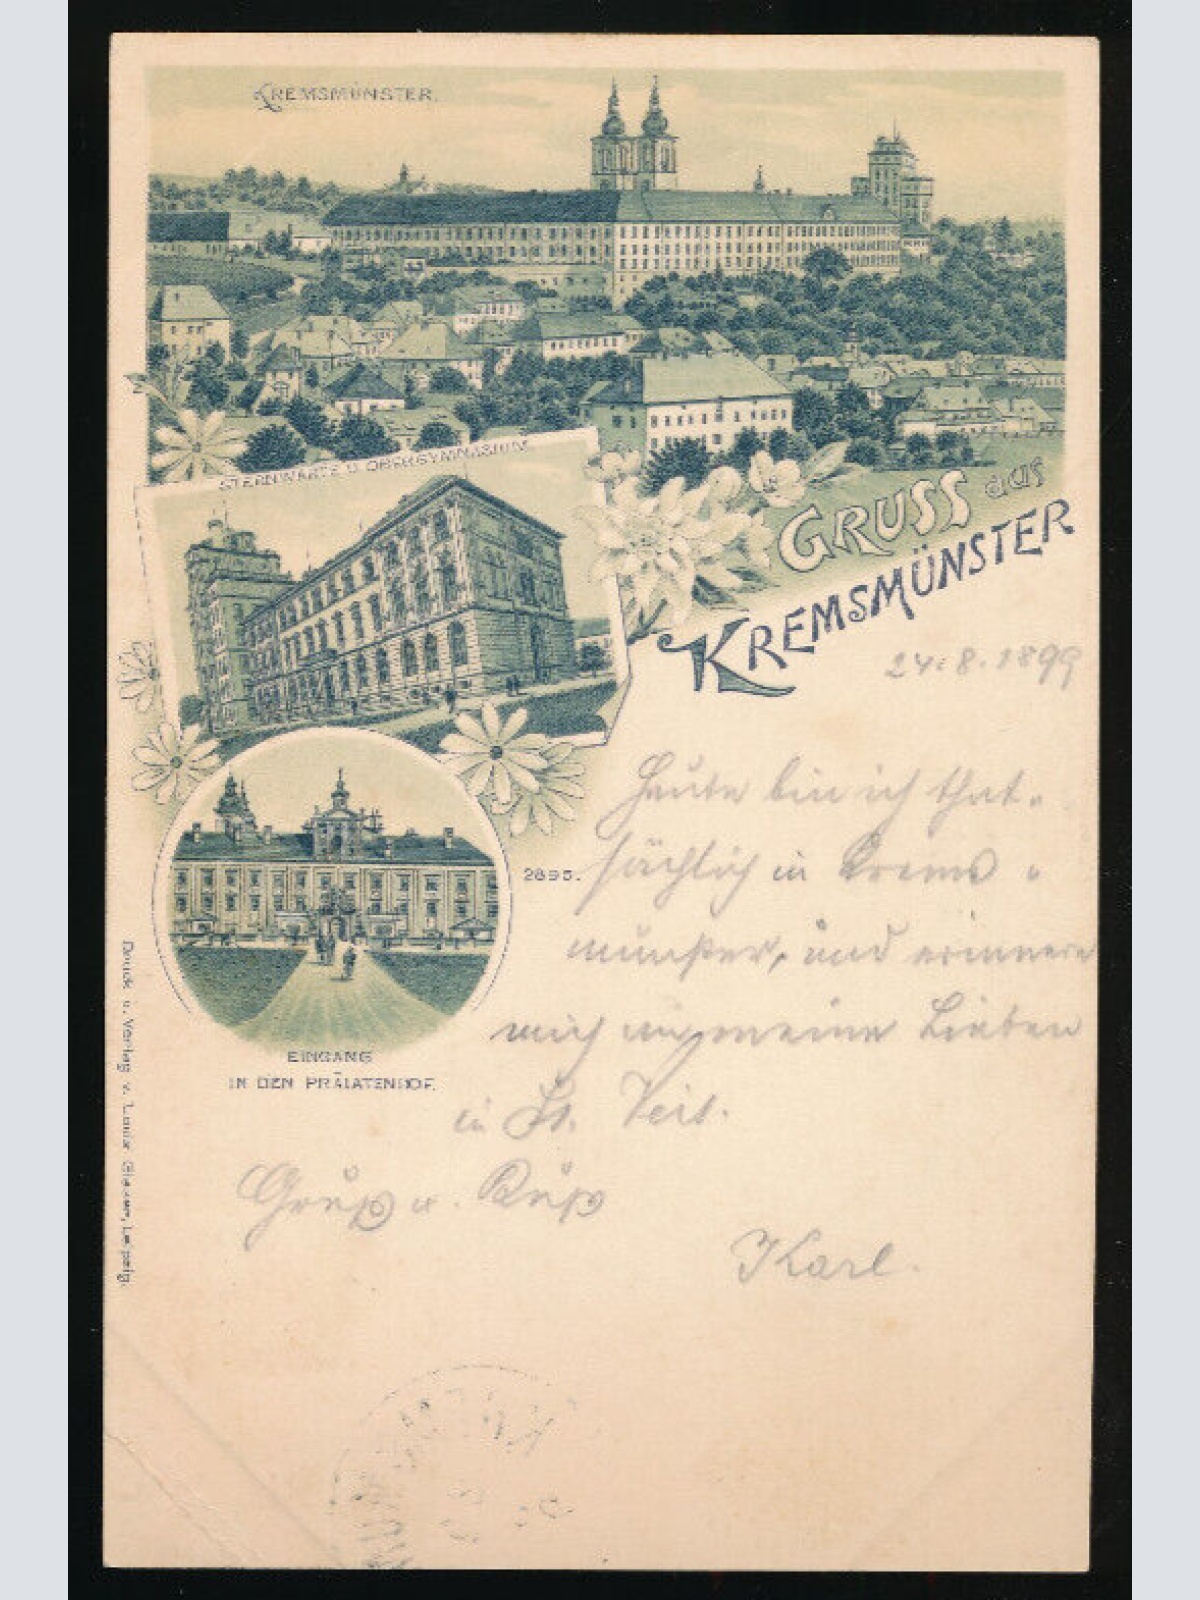 KREMSMÜNSTER.
STERNWARTE U. OBERGYMNASIUM
GRUSS aus
KREMSMÜNSTER
24.8.1899
Heute bin ich that-
sächlich in Krems-
münster, und erinnere
mich an meine Lieben
in St. Veit.
Gruß u. Kuß
Karl.
2895.
EINGANG
IN DEN PRÄLATENHOF.
Druck u. Verlag v. Louis Glaser, Leipzig.